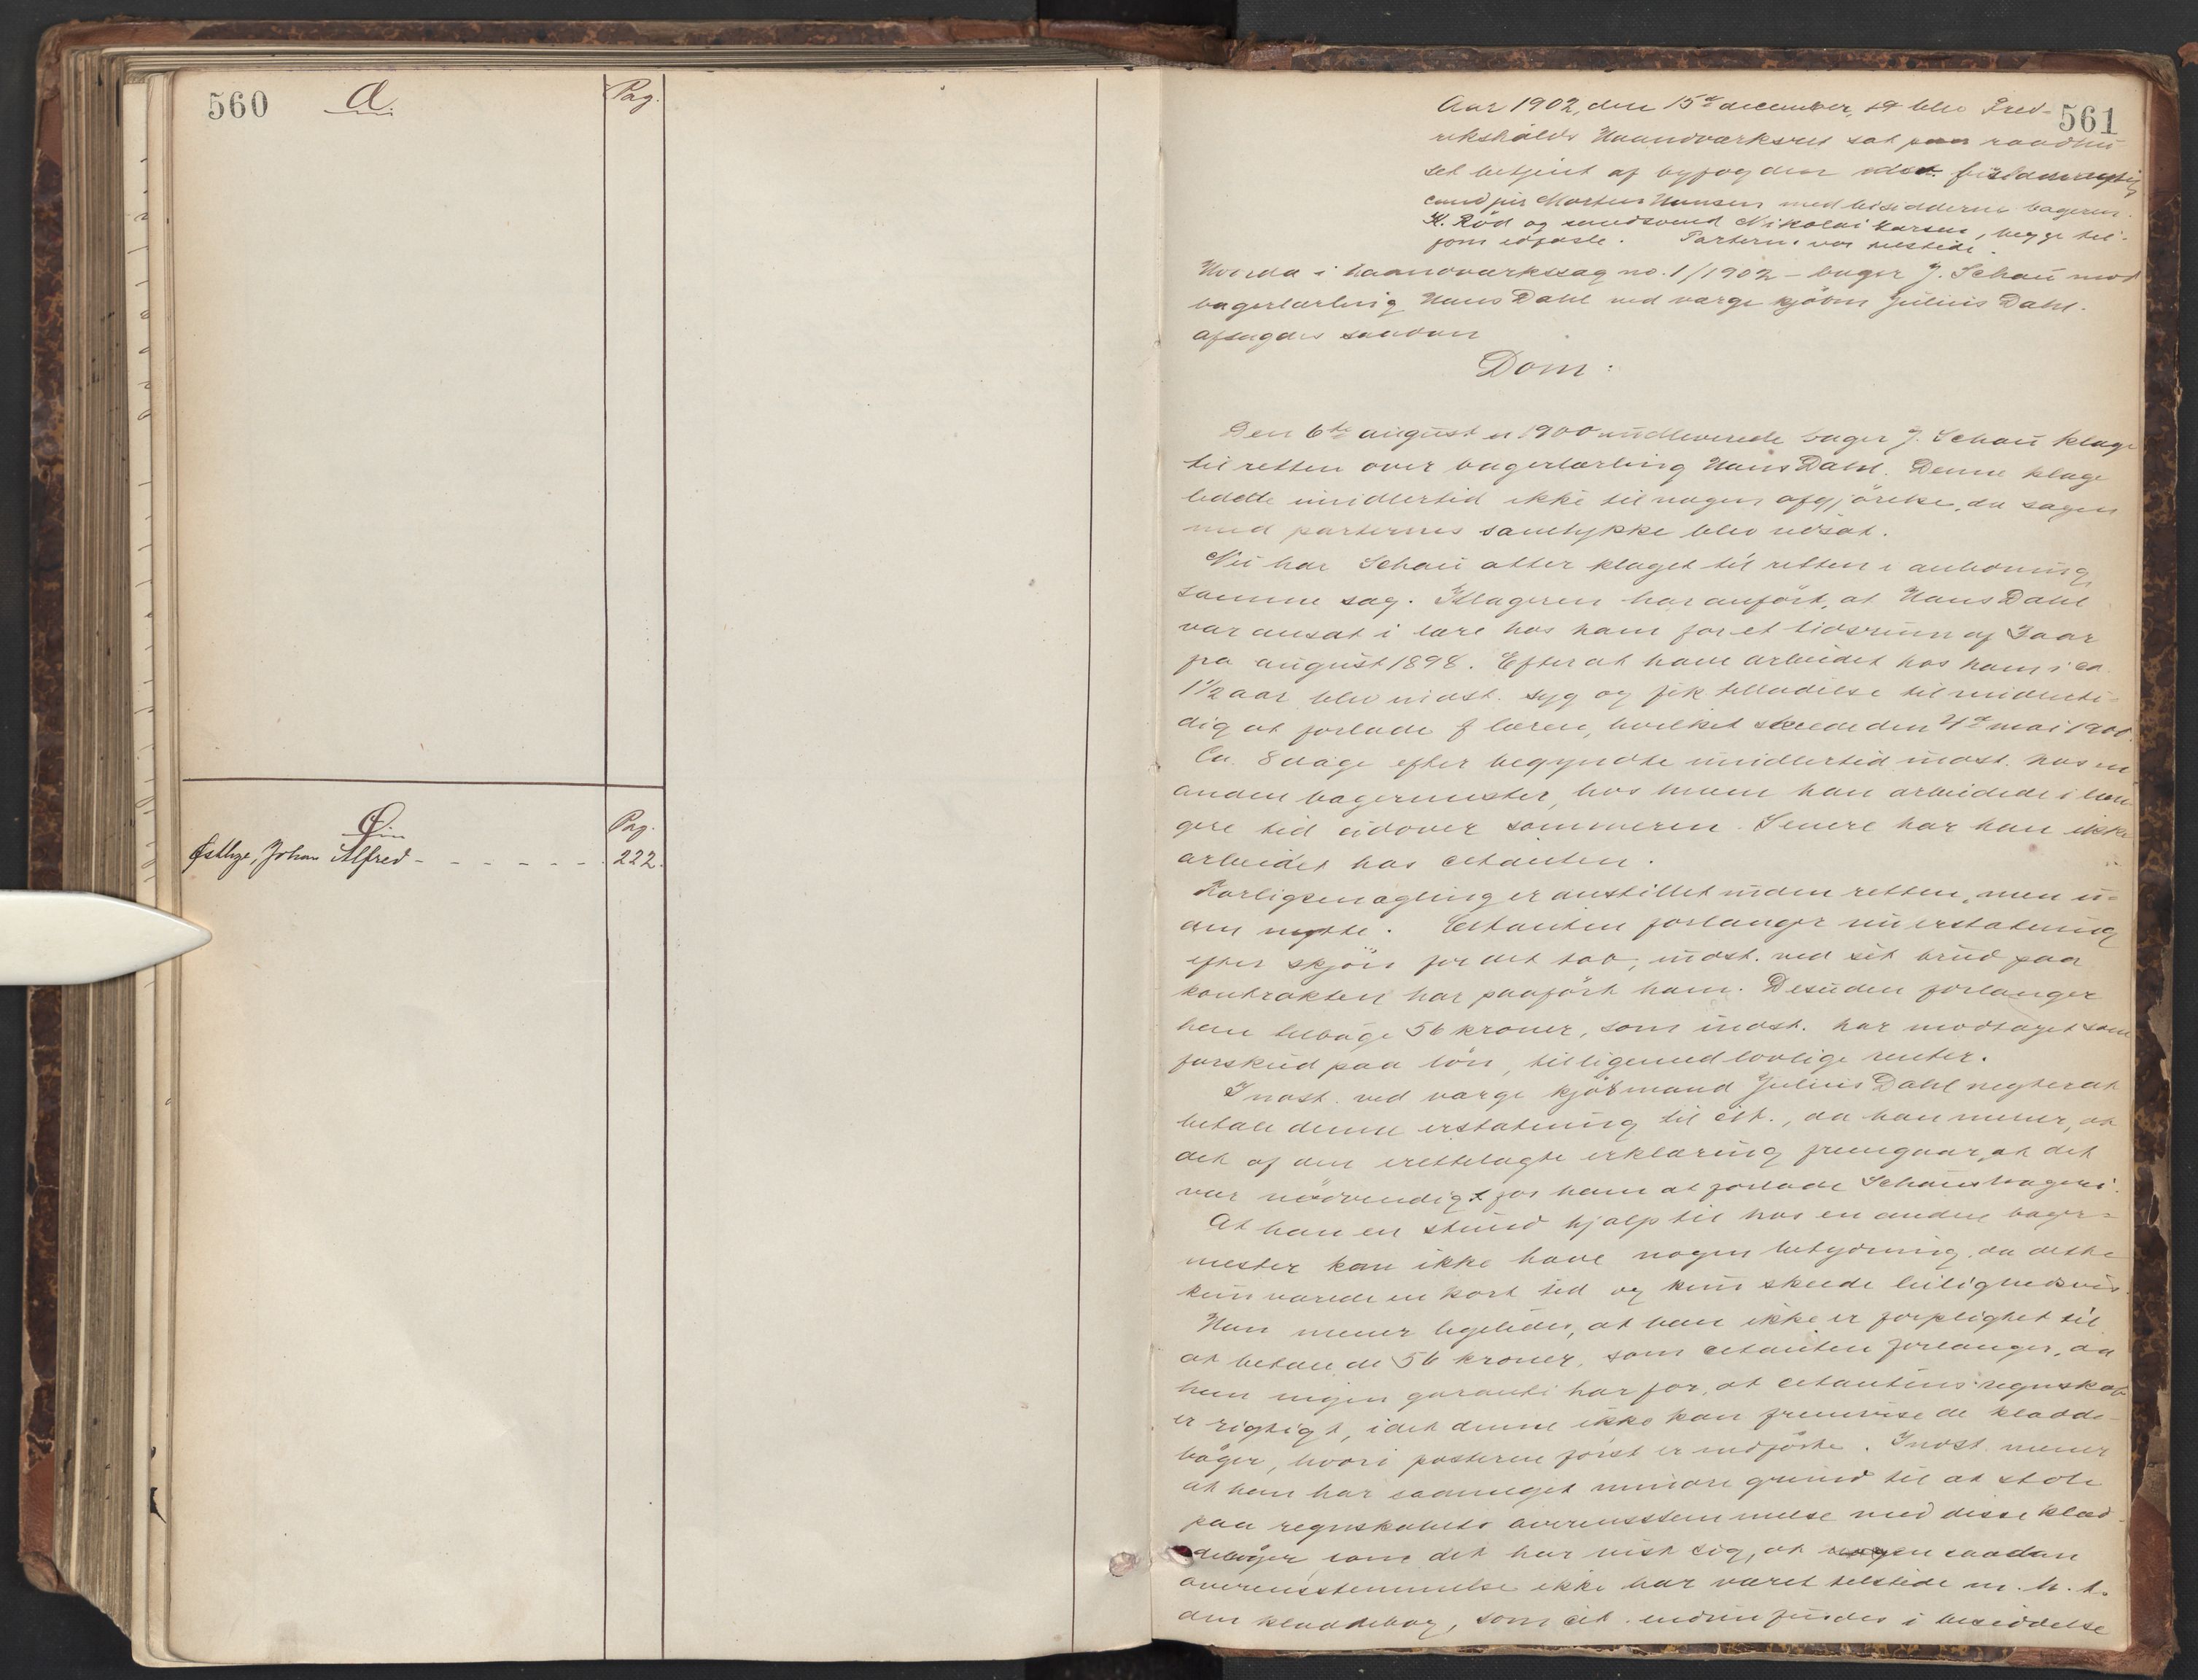 560 Æ. Pag.
Ø Pag.
Østbye, Johan Alfred - - - - - - 222.
561
Aar 1902, den 15de december, blev Fred-
rikshalds Haandværksret sat paa raadhu-
set betjent af byfogden ved fuldmægtig
cand jur Morten Hansen med bisidderne bager
K. Röd og svend Nikolai Larsen, begge til-
forn edfæste. Parterne var tilstede.
Hvorda i haandværkssag no. 1/1902 - bager J. Schau mod
bagerlærling Hans Dahl ved værge kjöbm Julius Dahl.
afsagdes saadan
Dom:
Den 6te august 1900 indleverede bager J. Schau klage
til retten over bagerlærling Hans Dahl. Denne klage
ledede imidlertid ikke til nogen afgjörelse, da sagen
med parternes samtykke blev udsat.
Nu har Schau atter klaget til retten i anledning
samme sag. Klageren har anfört, at Hans Dahl
var ansat i lære hos ham for et tidsrum af 3 aar
fra august 1898. Efter at have arbeidet hos ham i ca.
1 1/2 aar blev indst. syg og fik tilladelse til midlerti-
dig at forlade læren, hvilket skeede den 4de mai 1900.
Ca. 8 dage efter begyndte imidlertid indst. hos en
anden bagermester, hos hvem han arbeidede i læn-
gere tid udover sommeren. Senere har han ikke
arbeidet hos citanten.
Forligsmægling er anstillet inden retten, men u-
den nytte. Citanten forlanger nu erstatning
efter skjön for det tab, indst. ved sit brud paa
kontrakten har paafört ham. Desuden forlanger
han tilbage 56 kroner, som indst. har modtaget som
forskud paa lön, tilligemed lovlige renter.
Indst. ved værge kjöbmand Julius Dahl negter at
betale denne erstatning til cit., da han mener, at
det af den irettelagte erklæring fremgaar, at det
var nödvendigt for ham at forlade Schaus bageri.
At han en stund hjalp til hos en anden bager-
mester kan ikke have nogen betydning, da dette
kun varede en kort tid og kun skeede leilighedsvis.
Han mener ligeledes, at han ikke er forpligtet til
at betale de 56 kroner, som citanten forlanger, da
han ingen garanti har for, at citantens regnskab
er rigtigt, idet denne ikke kan fremvise de kladde-
böger, hvori posterne först er indförte. Indst. mener
at han har saameget mindre grund til at stole
paa regnskabets overensstemmelse med disse klad-
deböger, som det har vist sig, at nogen saadan
overensstemmelse ikke har været tilstede m. h. t.
den kladdebog, som cit. endnu findes i besiddelse